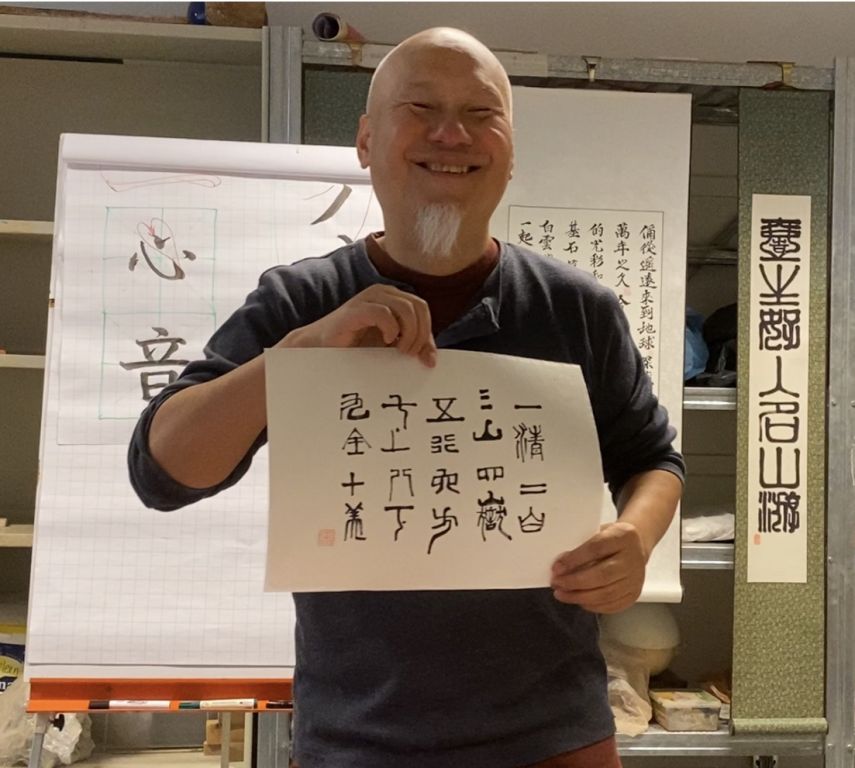 心
音
一清二白
三山四嶽
五行六方
七上八下
九全十美
從遙遠來到地球
萬年之久
的光彩和
基石
白雲
一起
壹生好入名山游